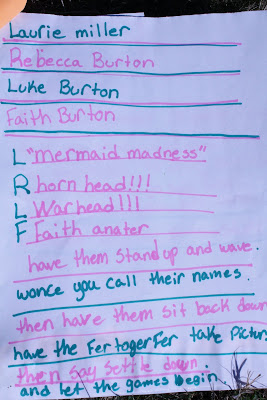 Laurie miller
Rebecca Burton
Luke Burton
Faith Burton
L "mermaid madness"
R horn head!!!
L Warhead!!!
F Faith anater
have them stand up and wave.
wonce you call their names.
then have them sit back down
have the Fertogerfer take Pictur
then say settle down
and let the games begin.